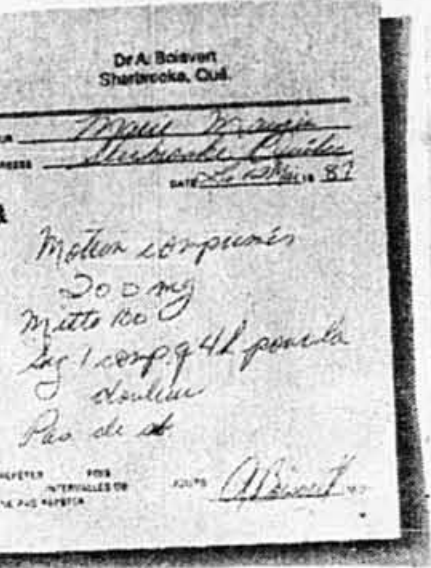 Dr A. Boisvert
Sherbrooke, Qué.
Marie
Sherbrooke, Québec
DATE 19 87
Motrin comprimés
200 mg
Mitte 100
Sig 1 comp. q 4h pour la
douleur
Pas de
REPETER FOIS
INTERVALLES DE JOURS
NE PAS REPETER
A Boisvert